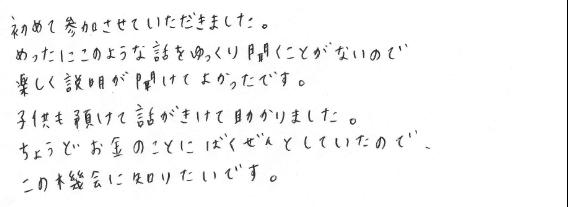 初めて参加させていただきました。
めったにこのような話をゆっくり聞くことがないので
楽しく説明が聞けてよかったです。
子供も預けて話がきけて助かりました。
ちょうどお金のことにばくぜんとしていたので、
この機会に知りたいです。